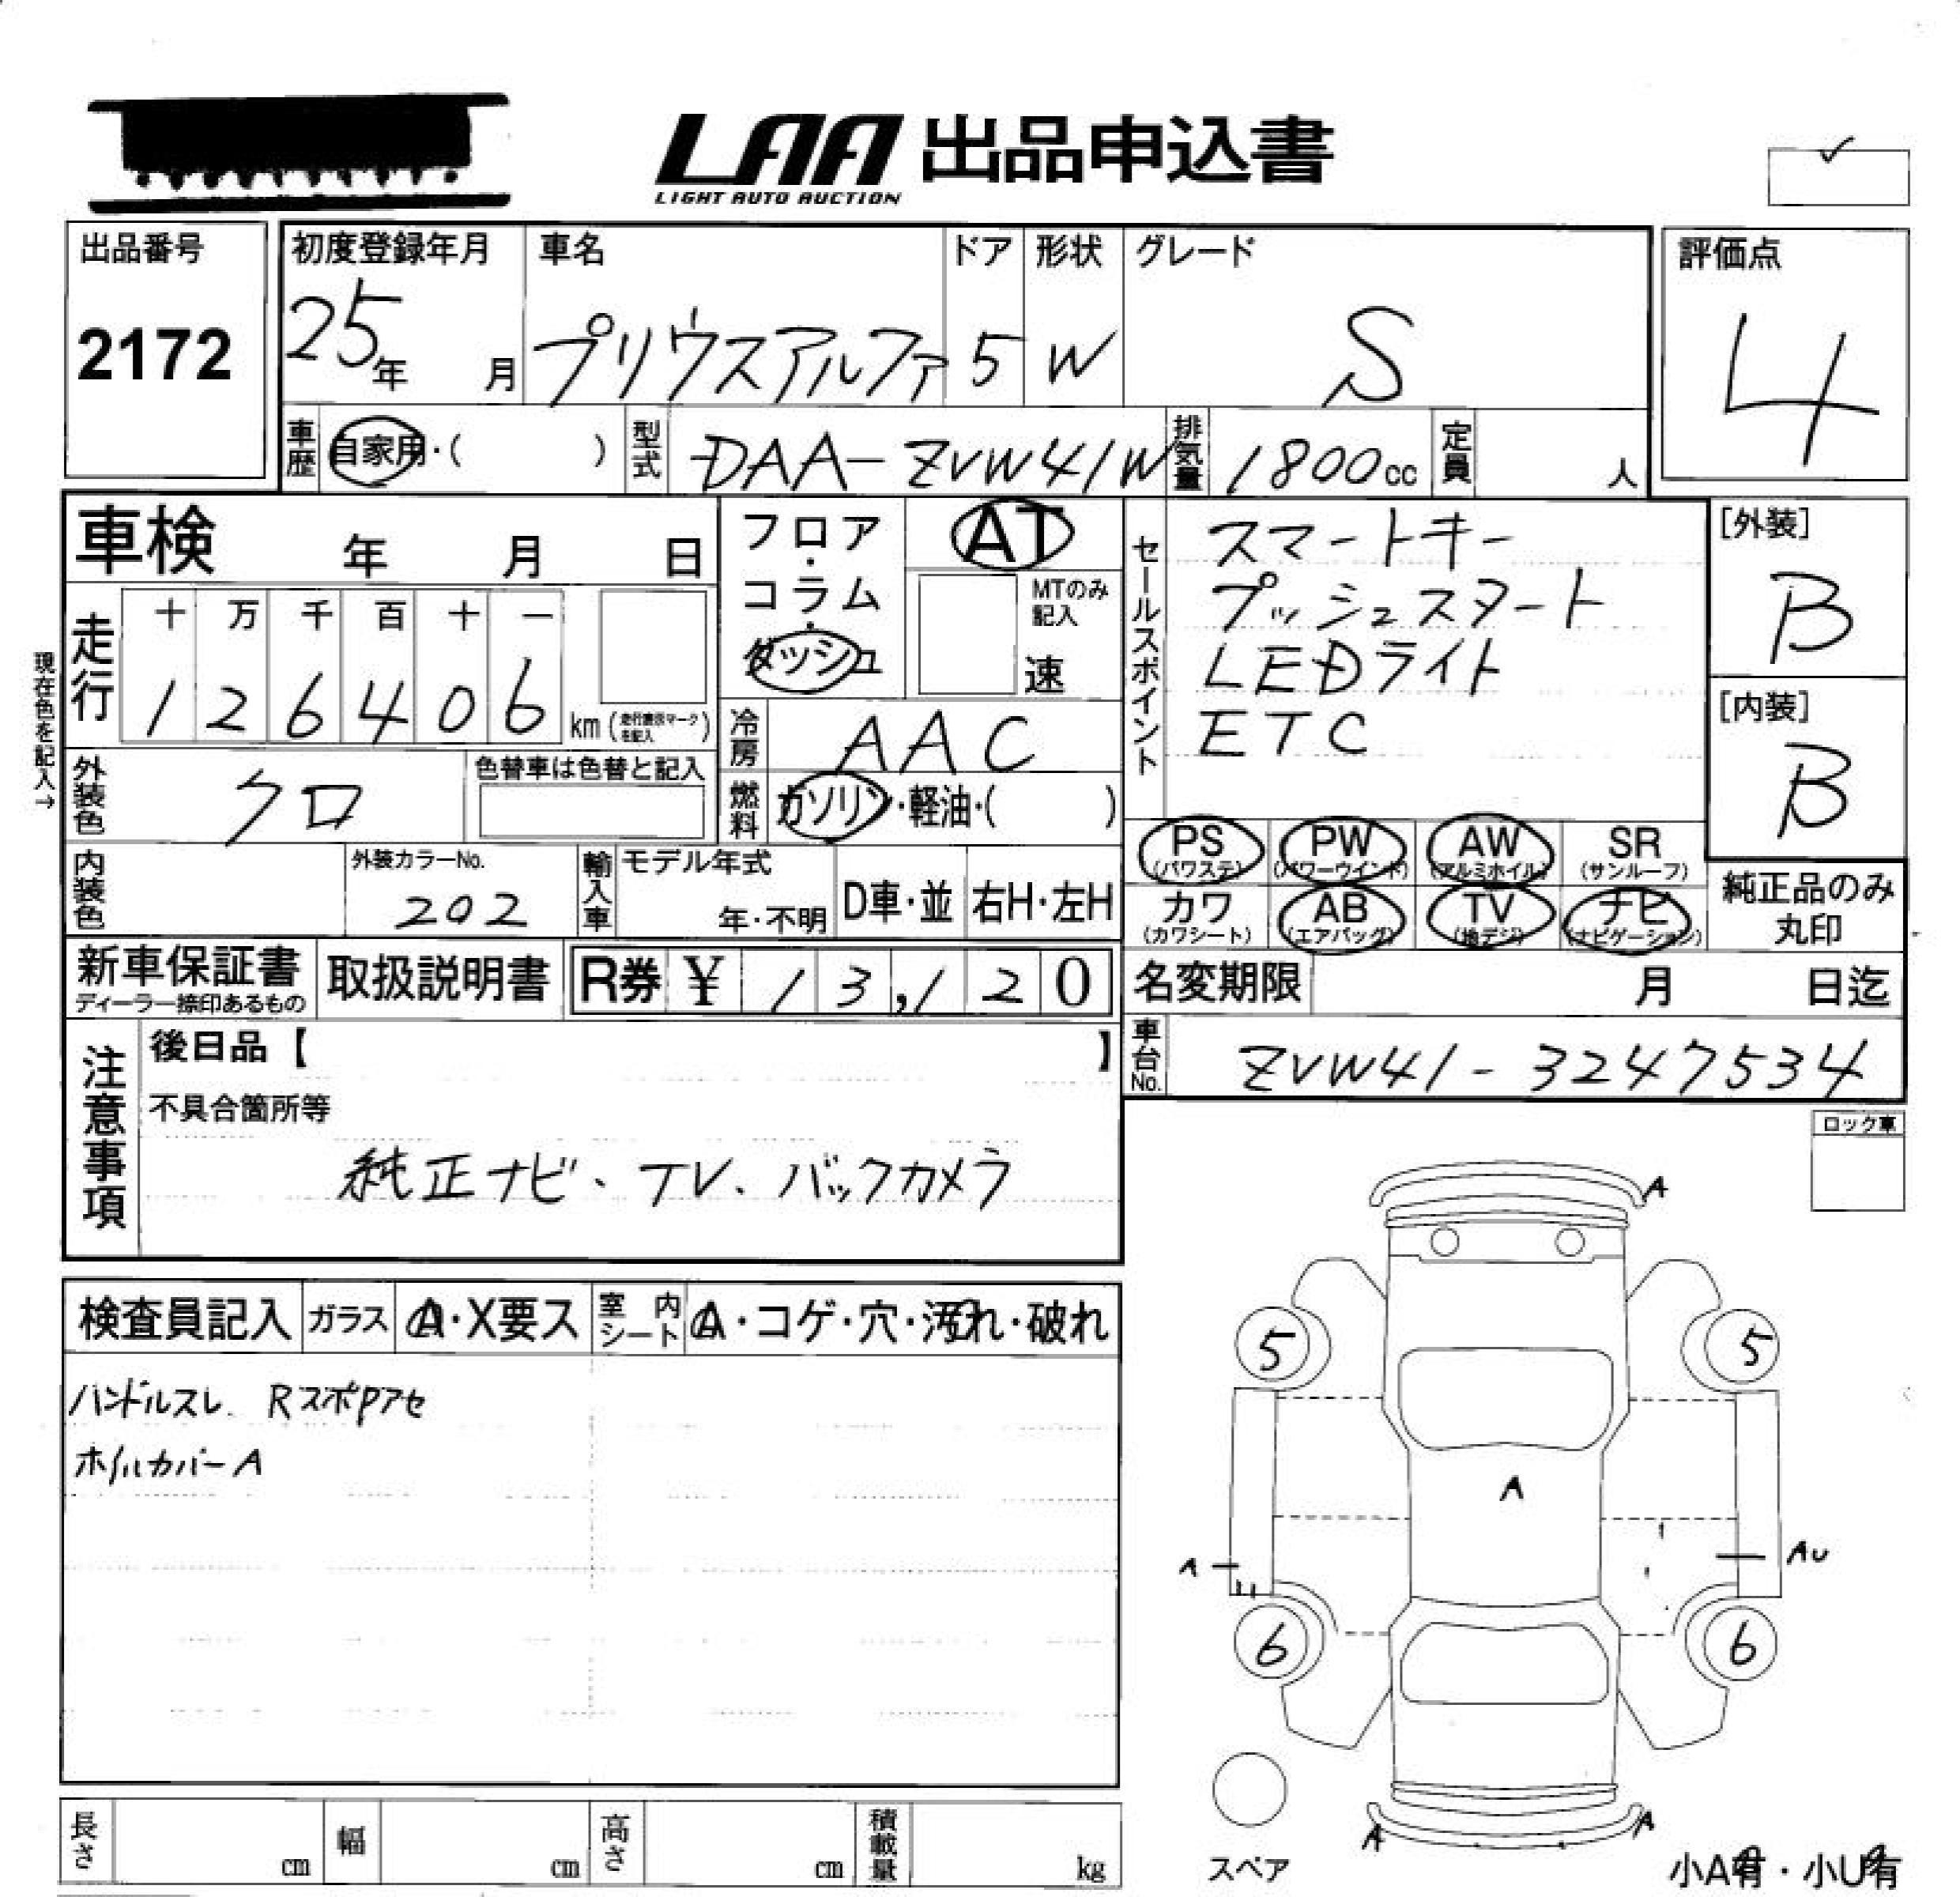 LAA 出品申込書
LIGHT AUTO AUCTION
出品番号
2172
初度登録年月
25年 月
車名
プリウスアルファ
ドア
5
形状
W
グレード
S
評価点
4
車歴
自家用・( )
型式
DAA-ZVW41W
排気量
1800cc
定員
人
車検 年 月 日
フロア・コラム・ダッシュ
AT
MTのみ記入
速
セールスポイント
スマートキー
プッシュスタート
LEDライト
ETC
[外装]
B
[内装]
B
現在色を記入→
走行
十 万 千 百 十 一
1 2 6 4 0 6
km (走行表示マークを記入)
冷房
AAC
外装色
クロ
色替車は色替と記入
燃料
ガソリン・軽油・( )
PS (パワステ)
PW (パワーウインド)
AW (アルミホイル)
SR (サンルーフ)
カワ (カワシート)
AB (エアバッグ)
TV (地デジ)
ナビ (ナビゲーション)
純正品のみ
丸印
内装色
外装カラーNo.
202
輸入車
モデル年式
年・不明
D車・並
右H・左H
新車保証書
ディーラー捺印あるもの
取扱説明書
R券 ¥ 13,120
名変期限 月 日迄
車台No.
ZVW41-3247534
注意事項
後日品【 】
不具合箇所等
純正ナビ、TV、バックカメラ
ロック車
検査員記入
ガラス
A・X要ス
室内シート
A・コゲ・穴・汚れ・破れ
ハンドルスレ. RスポPアセ
ホイルカバーA
A
5
5
A
A
AU
6
6
A
A
スペア
小A有・小U有
長さ cm
幅 cm
高さ cm
積載量 kg